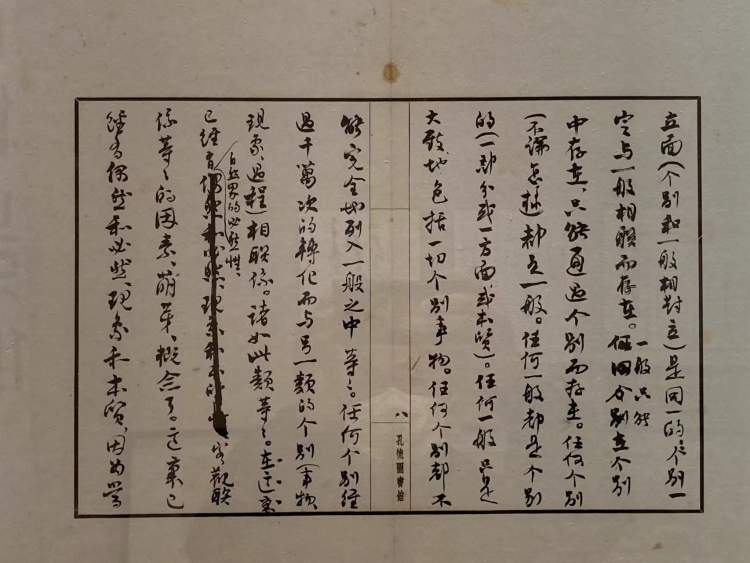 立面(个别和一般相對立)是同一的:个别一
定与一般相联而存在。一般只能在个别
中存在,只能通过个别而存在。任何个别
(不論怎样)都是一般。任何一般都是个别
的(一部分或一方面或本質)。任何一般只是
大致地包括一切个别事物。任何个别都不
八
孔德圖書館
能完全地列入一般之中等等。任何个别經
過千萬次的轉化而与另一類的个别(事物
现象,過程)相联係。諸如此類等等。在这裏
已經有自然界的必然性,客觀联
係等等的因素、萌芽、概念了。这裏已
經有偶然和必然,现象和本質,因为當